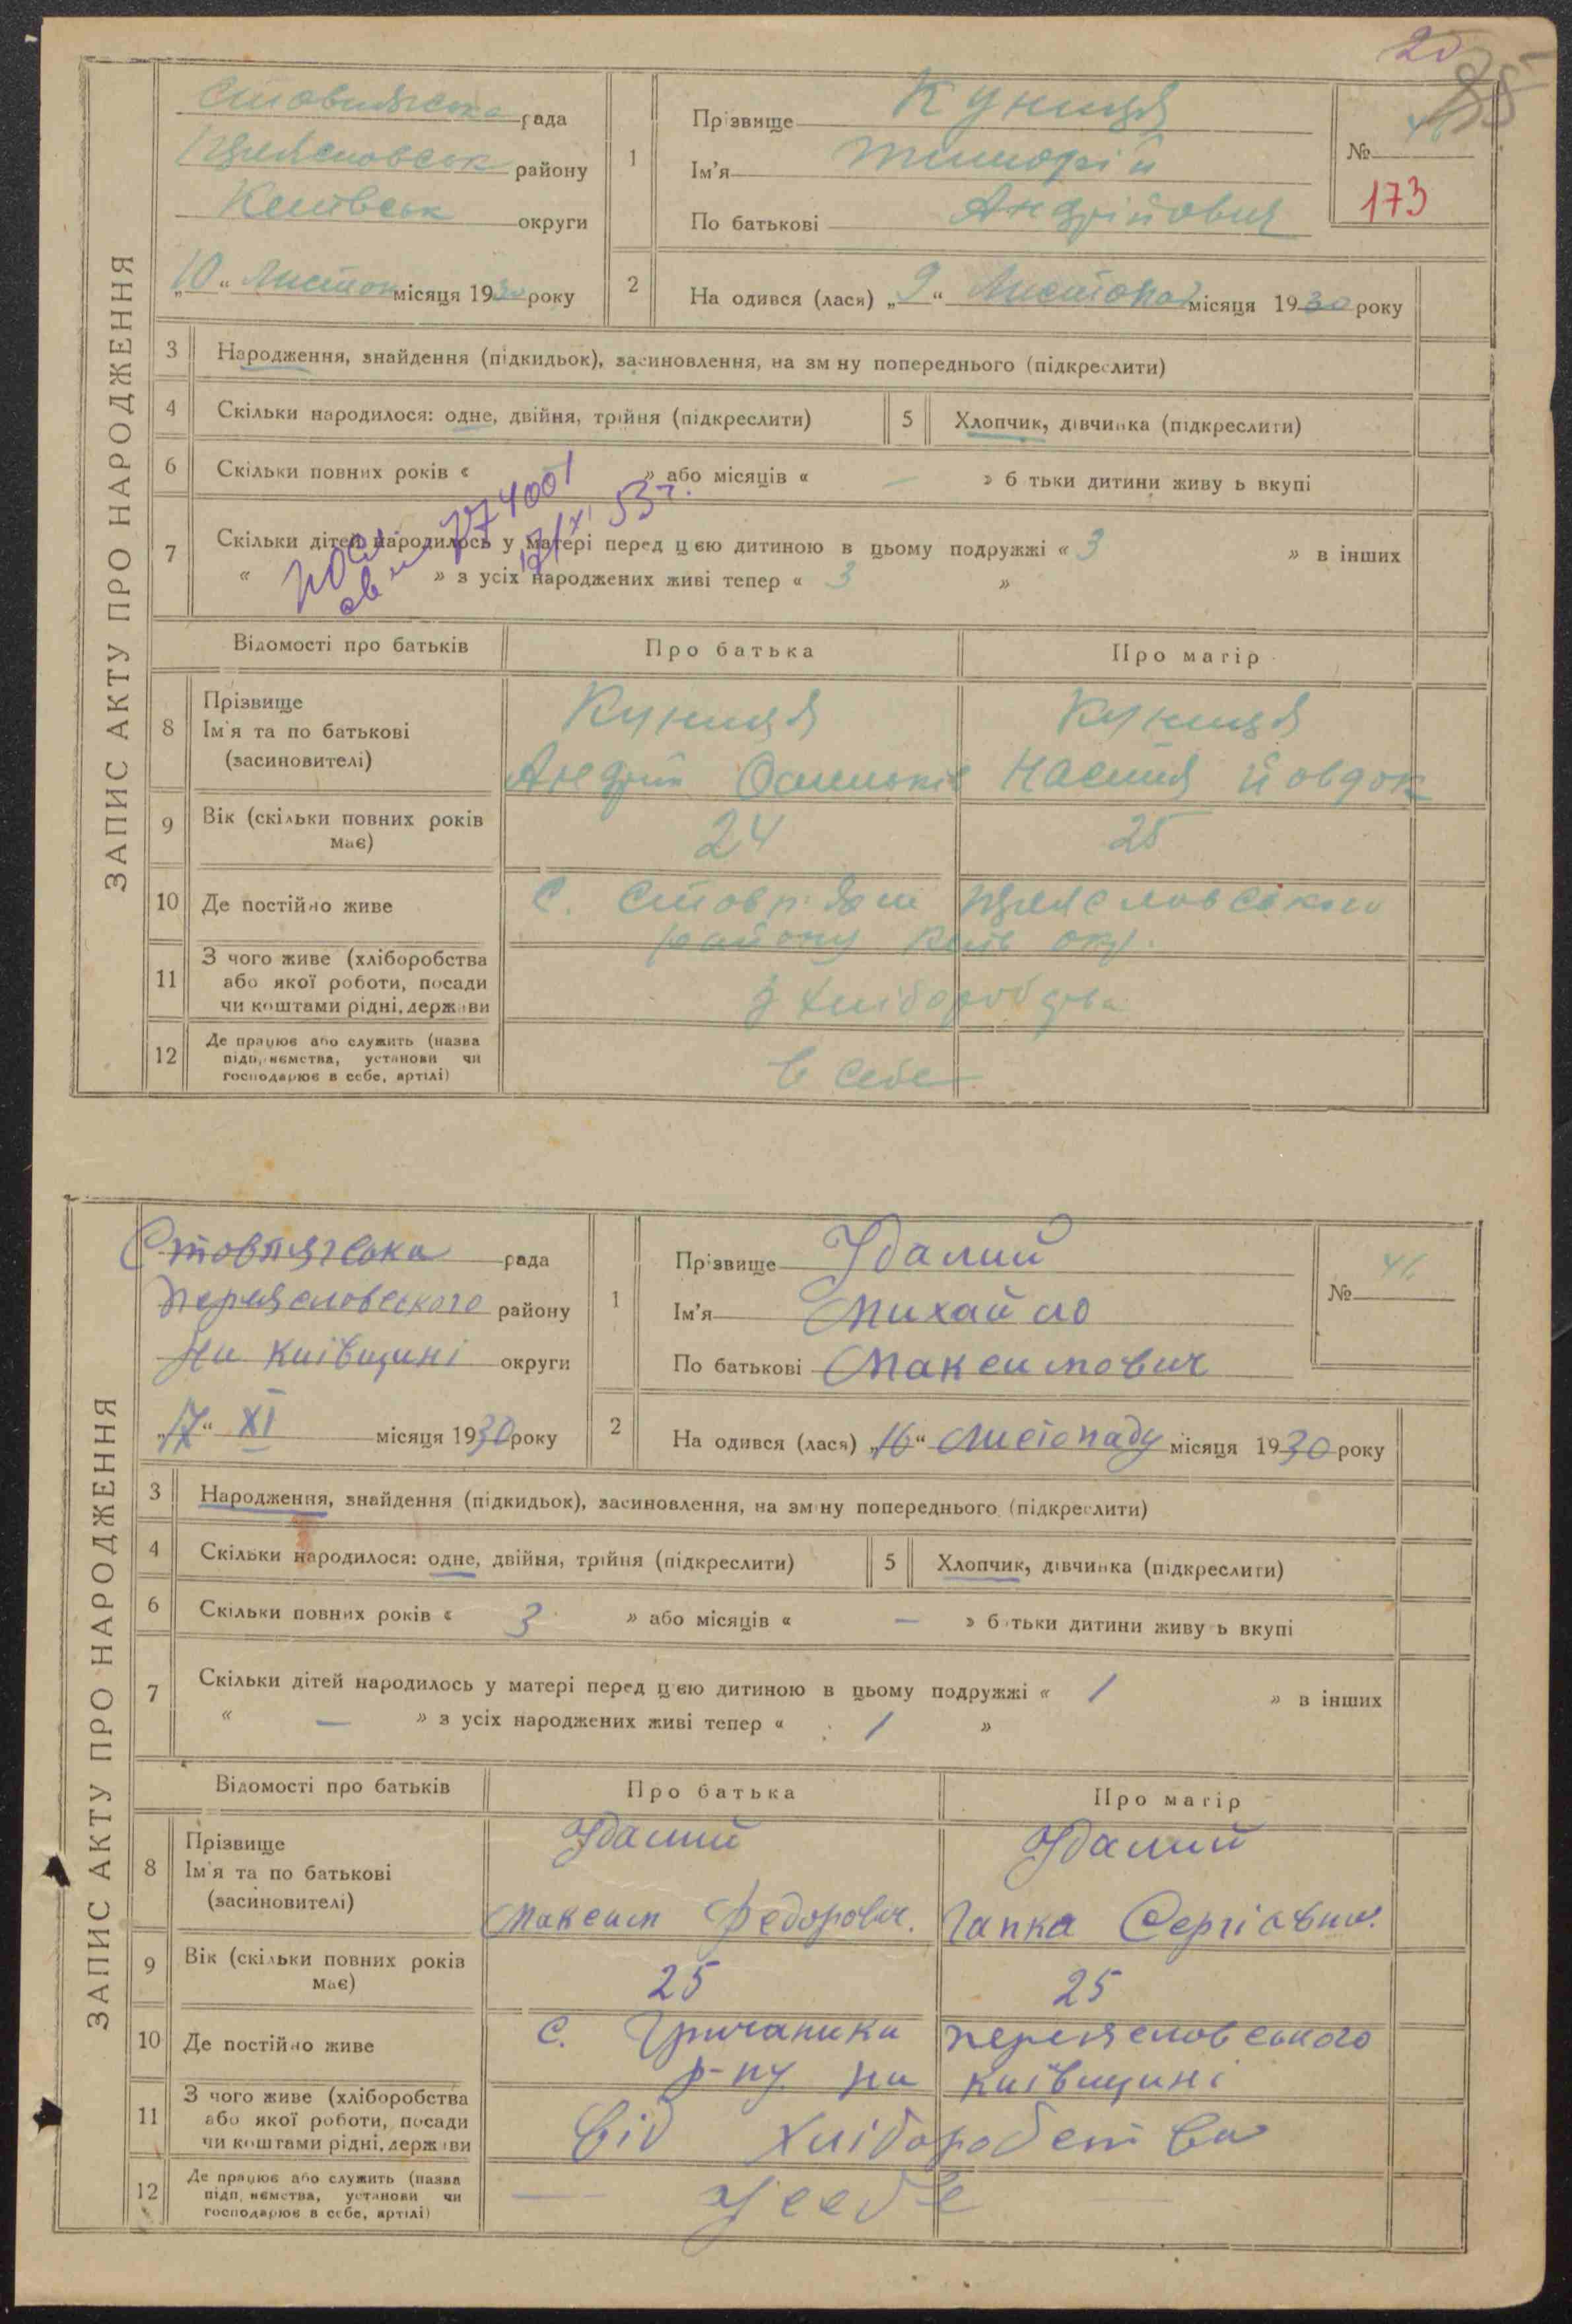 20
ЗАПИС АКТУ ПРО НАРОДЖЕННЯ
рада
району
округи
„10“ Листоп місяця 1930 року
1 Прізвище Куниця
Ім'я Тимофій
По батькові Андрійович
№
173
2 На одився (лася) „9“ Листопад місяця 1930 року
3 Народження, знайдення (підкидьок), засиновлення, на зм ну попереднього (підкреслити)
4 Скільки народилося: одне, двійня, трійня (підкреслити) 5 Хлопчик, дівчинка (підкреслити)
6 Скільки повних років « » або місяців « — » б тьки дитини живу ь вкупі
7 Скільки дітей народилось у матері перед ц єю дитиною в цьому подружжі « 3 » в інших
« » з усіх народжених живі тепер « 3 »
Відомості про батьків Про батька Про матір
8 Прізвище
Ім'я та по батькові
(засиновителі)
Куниця Куниця
Андрій Настя
9 Вік (скільки повних років
має)
24 25
10 Де постійно живе
С.
району Київ окр.
11 З чого живе (хліборобства
або якої роботи, посади
чи коштами рідні, держави
З хліборобства
12 Де працює або служить (назва
підприємства, установи чи
господарює в себе, артілі)
в себе
ЗАПИС АКТУ ПРО НАРОДЖЕННЯ
Стовпязська рада
Переяславського району
На Київщині округи
„17“ XI місяця 1930 року
1 Прізвище Удалий
Ім'я Михайло
По батькові Максимович
№ 41
2 На одився (лася) „16“ Листопаду місяця 1930 року
3 Народження, знайдення (підкидьок), засиновлення, на зм ну попереднього (підкреслити)
4 Скільки народилося: одне, двійня, трійня (підкреслити) 5 Хлопчик, дівчинка (підкреслити)
6 Скільки повних років « 3 » або місяців « — » б тьки дитини живу ь вкупі
7 Скільки дітей народилось у матері перед ц єю дитиною в цьому подружжі « 1 » в інших
« — » з усіх народжених живі тепер « 1 »
Відомості про батьків Про батька Про матір
8 Прізвище
Ім'я та по батькові
(засиновителі)
Удалий Удалий
Максим Федорович. Гапка Сергіївна.
9 Вік (скільки повних років
має)
25 25
10 Де постійно живе
с. Гричаники Переяславського
р-ну на Київщині
11 З чого живе (хліборобства
або якої роботи, посади
чи коштами рідні, держави
Від хліборобства
12 Де працює або служить (назва
підприємства, установи чи
господарює в себе, артілі)
— У себе —